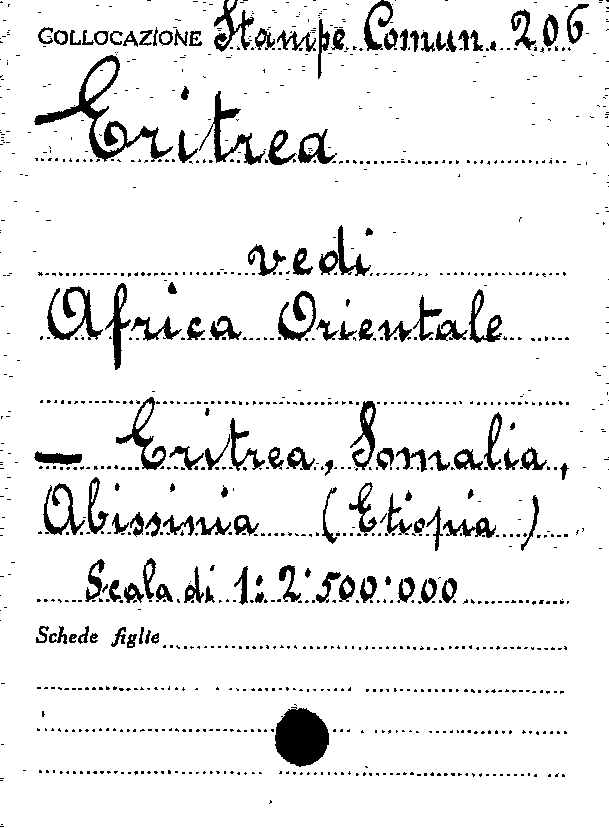 COLLOCAZIONE Stampe Comun. 206
Eritrea
vedi
Africa Orientale
— Eritrea, Somalia,
Abissinia (Etiopia)
Scala di 1:2˙500˙000
Schede figlie